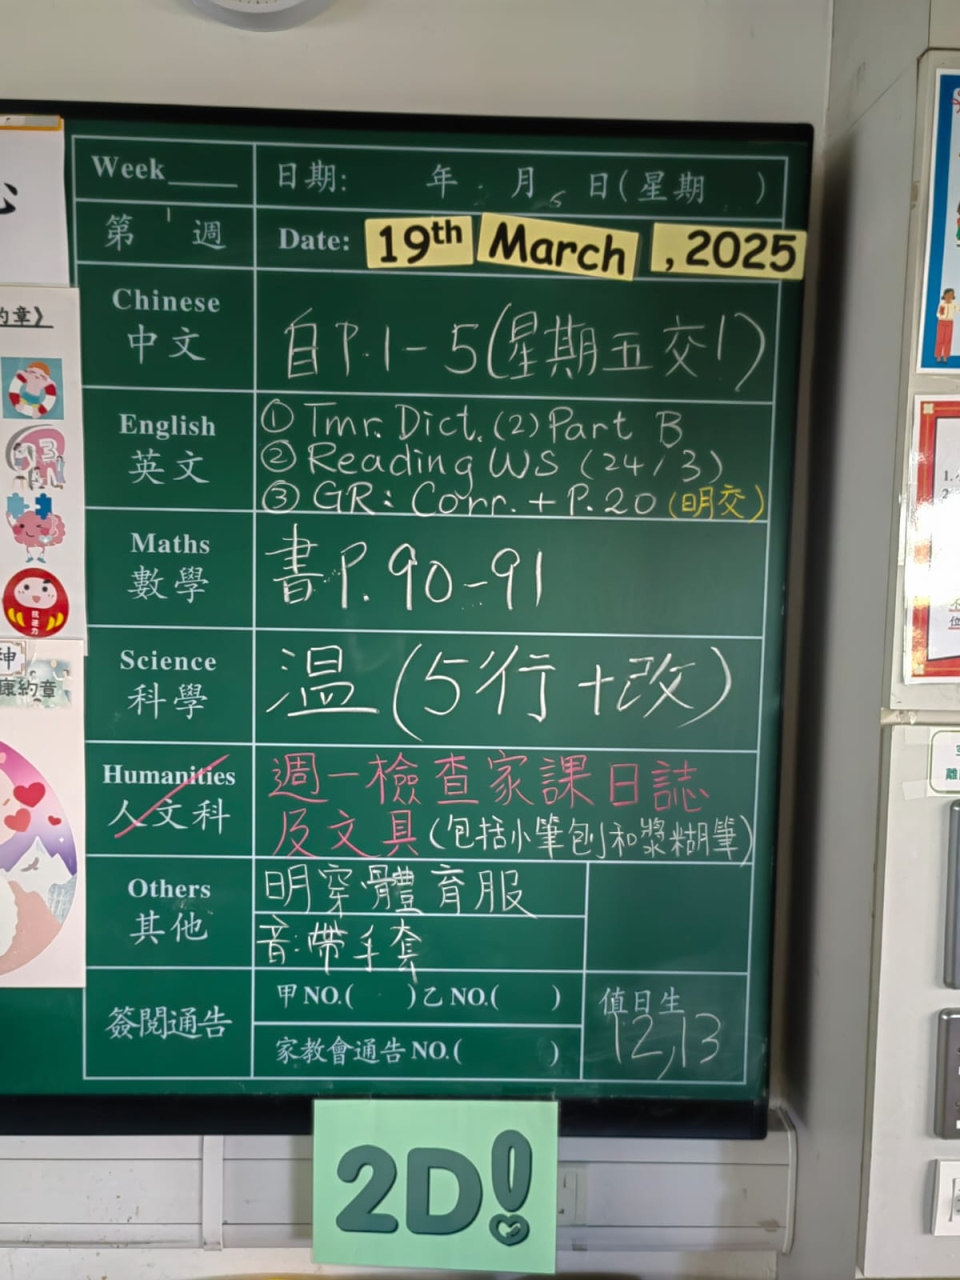 Week
日期: 年 月 日(星期 )
第 週
Date: 19th March , 2025
Chinese
中文
自P.1-5(星期五交!)
English
英文
① Tmr. Dict. (2) Part B
② Reading WS (24/3)
③ GR: Corr. + P.20 (明交)
Maths
數學
書P.90-91
Science
科學
溫(5行+改)
Humanities
人文科
週一檢查家課日誌
及文具(包括小筆刨和漿糊筆)
Others
其他
明穿體育服
音:帶手套
簽閱通告
甲NO.( )乙NO.( )
家教會通告NO.( )
值日生
12,13
2D!
約章》
神
康約章
我延力